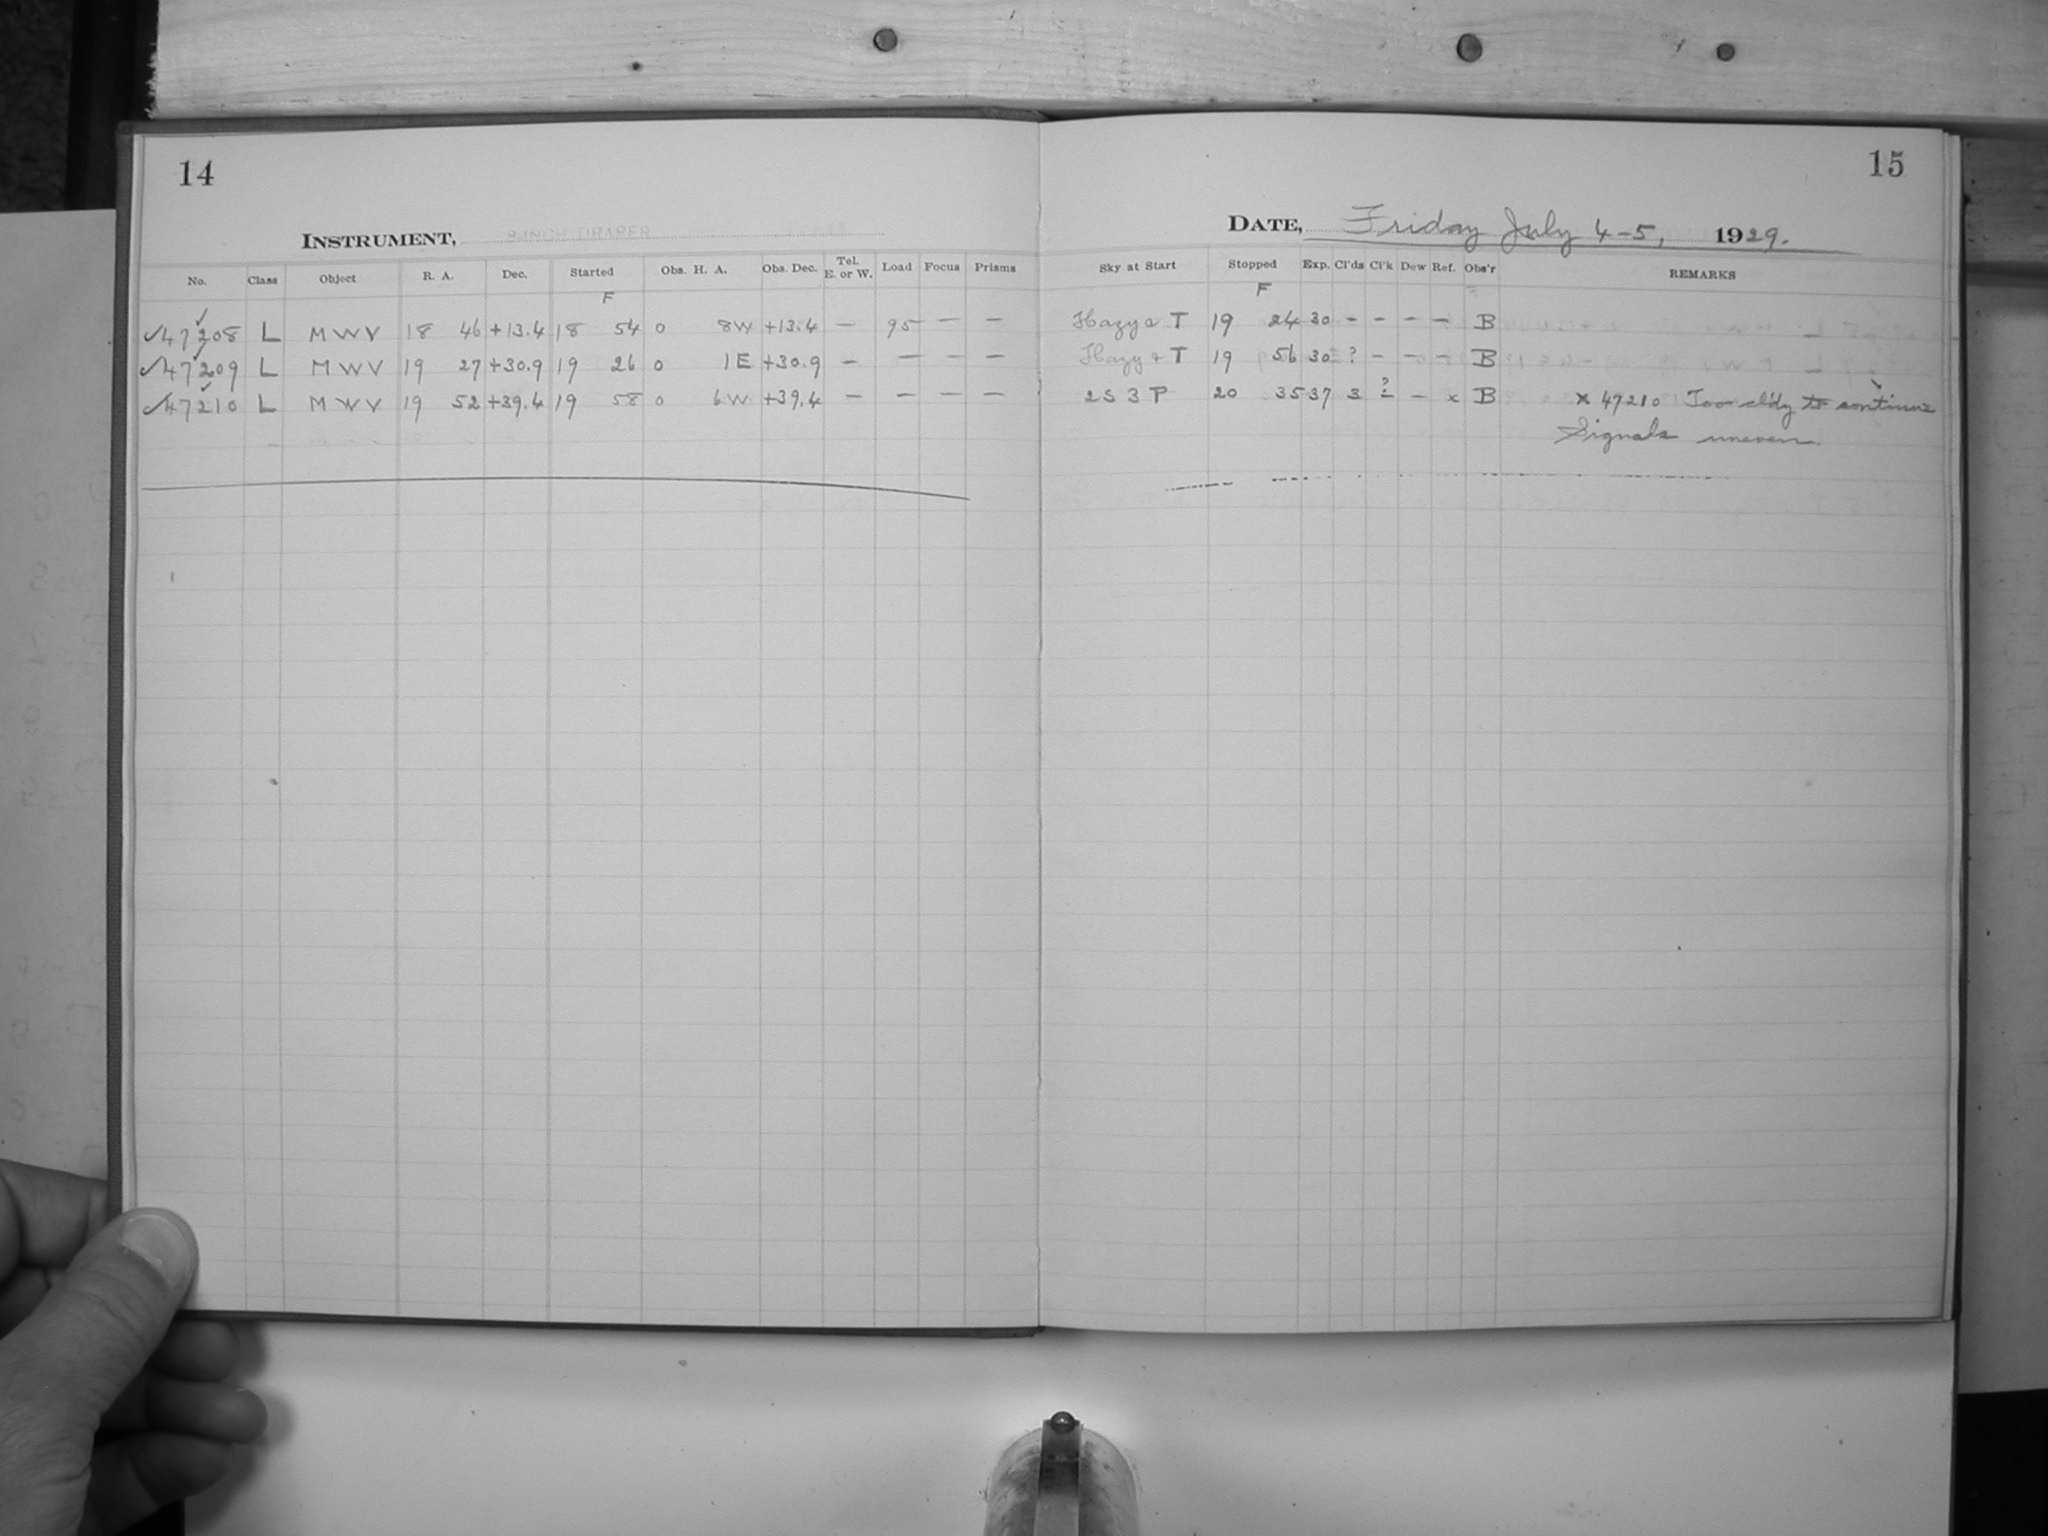 14
INSTRUMENT, 8-INCH DRAPER
No. Class Object R. A. Dec. Started Obs. H. A. Obs. Dec. Tel. E. or W. Load Focus Prisms
F
✓47208 L MWV 18 46 +13.4 18 54 0 8W +13.4 — 95 — —
✓47209 L MWV 19 27 +30.9 19 26 0 1E +30.9 — — — —
✓47210 L MWV 19 52 +39.4 19 58 0 6W +39.4 — — — —
15
DATE, Friday July 4-5, 1929.
Sky at Start Stopped Exp. Cl'ds Cl'k Dew Ref. Obs'r REMARKS
F
Hazy & T 19 24 30 - - - - B
Hazy & T 19 56 30 ? - - - B
2S 3 P 20 35 37 3 ? - x B x 47210 Too cl'dy to continue
Signals uneven.